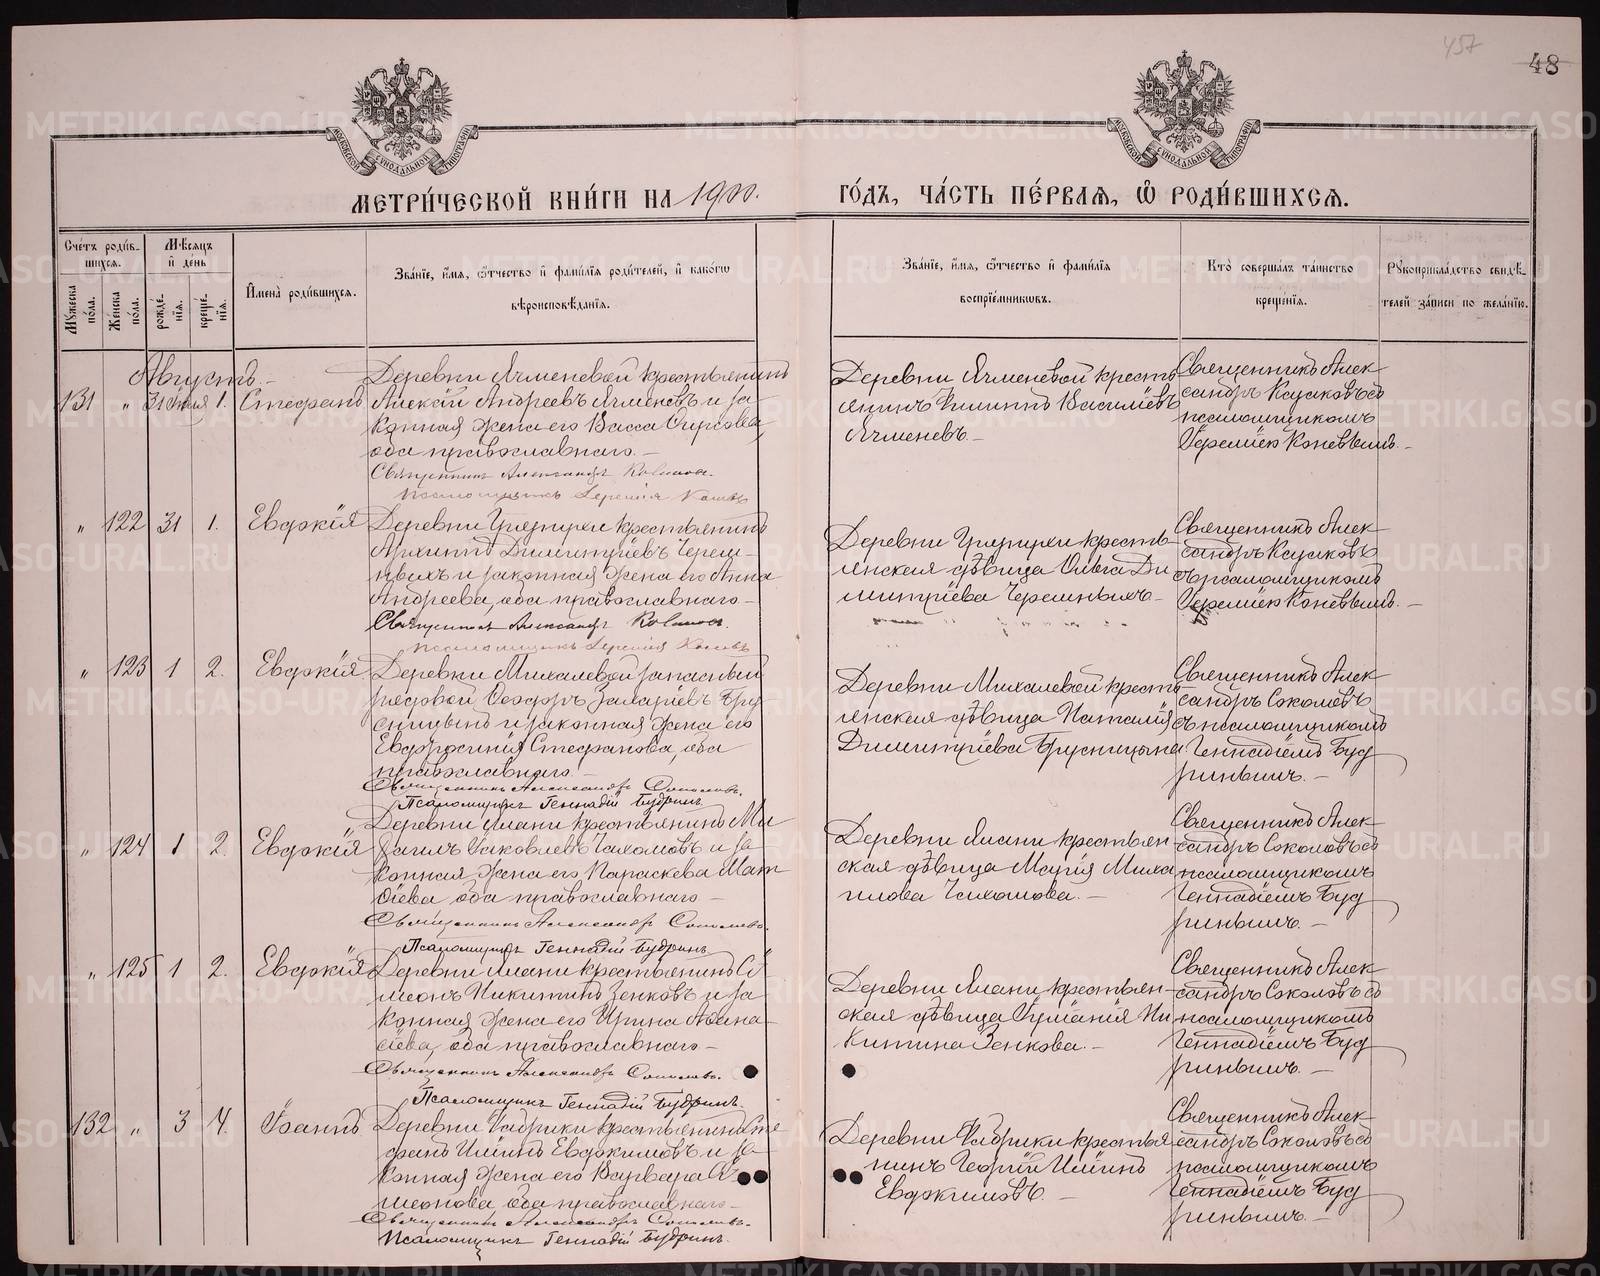 457
48
МОСКОВСКОЙ СѴНОДАЛЬНОЙ ТИПОГРАФІИ
МОСКОВСКОЙ СѴНОДАЛЬНОЙ ТИПОГРАФІИ
МЕТРИ́ЧЕСКОЙ КНИ́ГИ НА 1900.
ГО́ДЪ, ЧА́СТЬ ПЕ́РВАѦ, Ѡ҆ РОДИ́ВШИХСѦ.
Сче́тъ роди́в-
шихсѧ.
Мꙋ́жеска по́ла.
Же́нска по́ла.
Мѣ́сѧцъ и҆ де́нь
рожде́-
нїѧ.
креще́-
нїѧ.
И҆мена̀ роди́вшихсѧ.
Зва́нїе, и҆́мѧ, ѻ҆́тчество и҆ фами́лїѧ роди́телей, и҆ како́гѡ
вѣроисповѣ́данїѧ.
Зва́нїе, и҆́мѧ, ѻ҆́тчество и҆ фами́лїѧ
воспрїе́мникѡвъ.
Кто̀ соверша́лъ та́инство
креще́нїѧ.
Рꙋкоприкла́дство свидѣ́-
телей за́писи по жела́нїю.
Августъ.-
131 " 31 Июля 1. Стефанъ
Деревни Ячменевой крестьянинъ
Алексій Андреевъ Ячменевъ и за
конная жена его Васса
оба православнаго.-
Священникъ Александръ
Псаломщикъ Іеремія
Деревни Ячменевой кресть
янинъ Филиппъ Васильевъ
Ячменевъ.-
Священникъ Алек
сандръ съ
псаломщикомъ
Іереміею Коневымъ.-
" 122 31 1. Евдокія
Деревни крестьянинъ
Архиппъ Димитріевъ Череш-
ныхъ и законная жена его Анна
Андреева, оба православнаго.-
Священникъ Александръ
Псаломщикъ Іеремія
Деревни кресть
янская дѣвица Ольга Ди
митріева
Священникъ Алек
сандръ
съ псаломщикомъ
Іереміею Коневымъ.-
" 123 1 2. Евдокія
Деревни Михалевой запасный
рядовой Ѳеодоръ Захаріевъ Бру
сницынъ и законная жена его
Евфросинія Стефанова, оба
православнаго.-
Священникъ Александръ Соколовъ.
Псаломщикъ Геннадій Будринъ
Деревни Михалевой кресть
янская дѣвица Наталія
Димитріева Брусницына
Священникъ Алек
сандръ Соколовъ
съ псаломщикомъ
Геннадіемъ Буд
ринымъ.-
" 124 1 2. Евдокія
Деревни Ялани крестьянинъ Ми
хаилъ Іаковлевъ и за
конная жена его Параскева Мат
ѳіева оба православнаго-
Священникъ Александръ Соколовъ.
Псаломщикъ Геннадій Будринъ
Деревни Ялани крестьян
ская дѣвица Марія Миха
илова
Священникъ Алек
сандръ Соколовъ съ
псаломщикомъ
Геннадіемъ Буд
ринымъ.-
" 125 1 2. Евдокія
Деревни Ялани крестьянинъ Сѵ
меонъ Никитинъ Зенковъ и за
конная жена его Ирина Аѳана
сіева, оба православнаго-
Священникъ Александръ Соколовъ.
Псаломщикъ Геннадій Будринъ.
Деревни Ялани крестьян-
ская дѣвица Ни
китина Зенкова.-
Священникъ Алек
сандръ Соколовъ съ
псаломщикомъ
Геннадіемъ Буд
ринымъ.-
132 " 3 4. Іоаннъ
Деревни Фабрики крестьянинъ Сте
фанъ Евдокимовъ и за
конная жена его Варвара Сѵ
меонова, оба православнаго.-
Священникъ Александръ Соколовъ.
Псаломщикъ Геннадій Будринъ.
Деревни Фабрики крестья
нинъ Георгій
Евдокимовъ.-
Священникъ Алек
сандръ Соколовъ съ
псаломщикомъ
Геннадіемъ Буд
ринымъ.-
METRIKI.GASO-URAL.RU